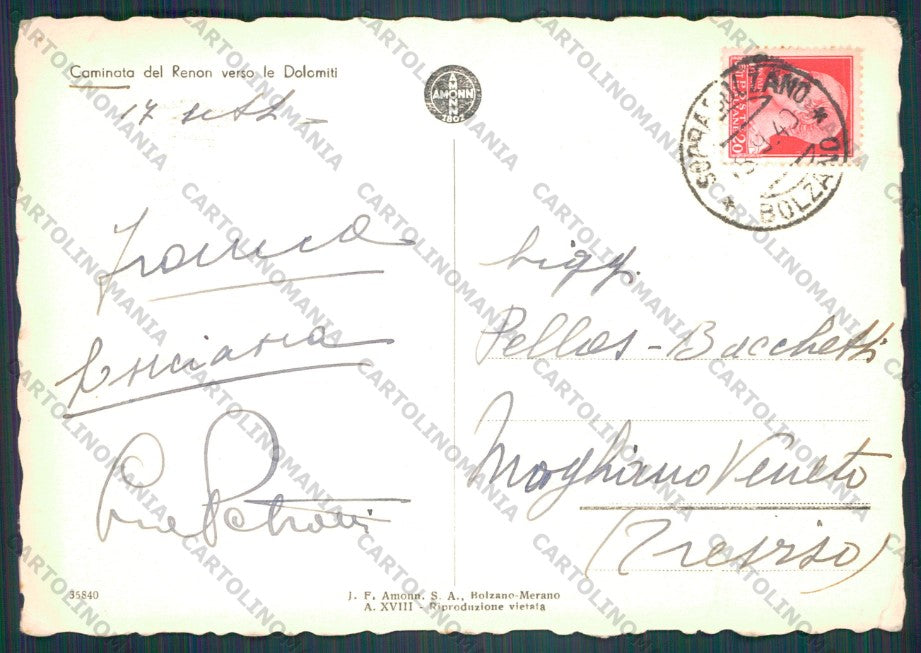 Caminata del Renon verso le Dolomiti
17 sett.
AMONN
1802
SOPRABOLZANO * BOLZANO *
20
Franca
Luciana
Sigg.
Pellas - Bacchetti
Mogliano Veneto
(Treviso)
35840
J. F. Amonn. S. A., Bolzano-Merano
A. XVIII - Riproduzione vietata
CARTOLINOMANIA